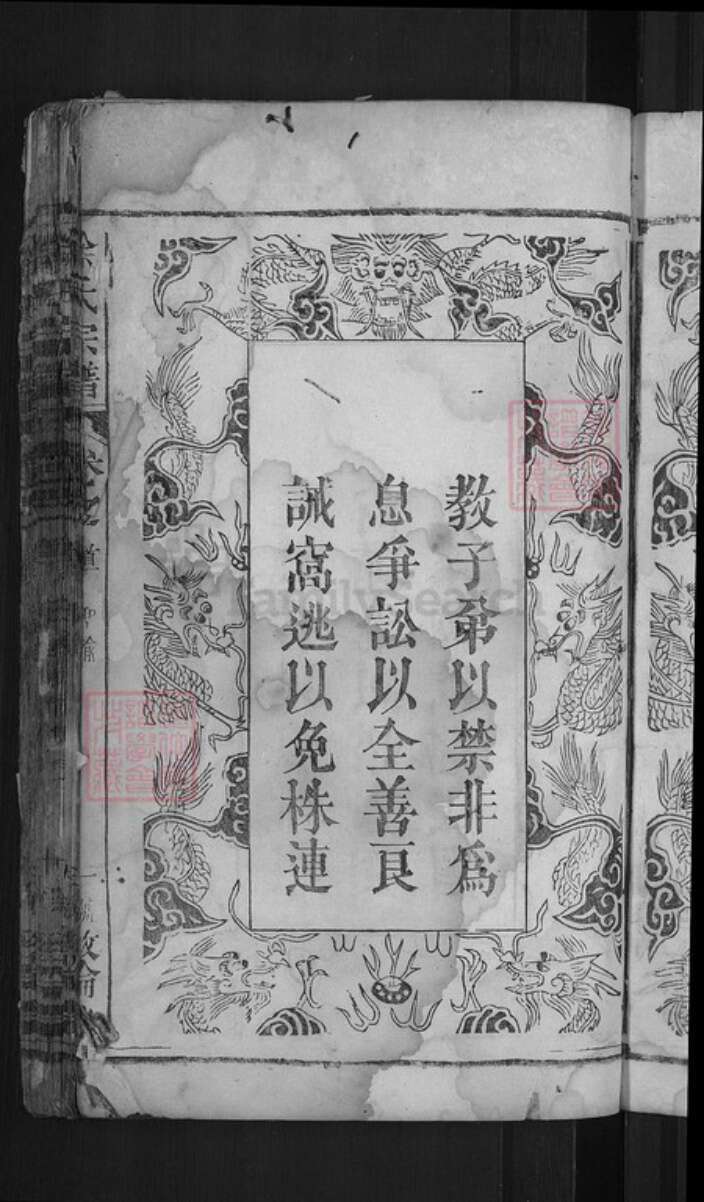 教子弟以禁非爲
息爭訟以全善良
誡窩逃以免株連
氏宗譜
FamilySearch